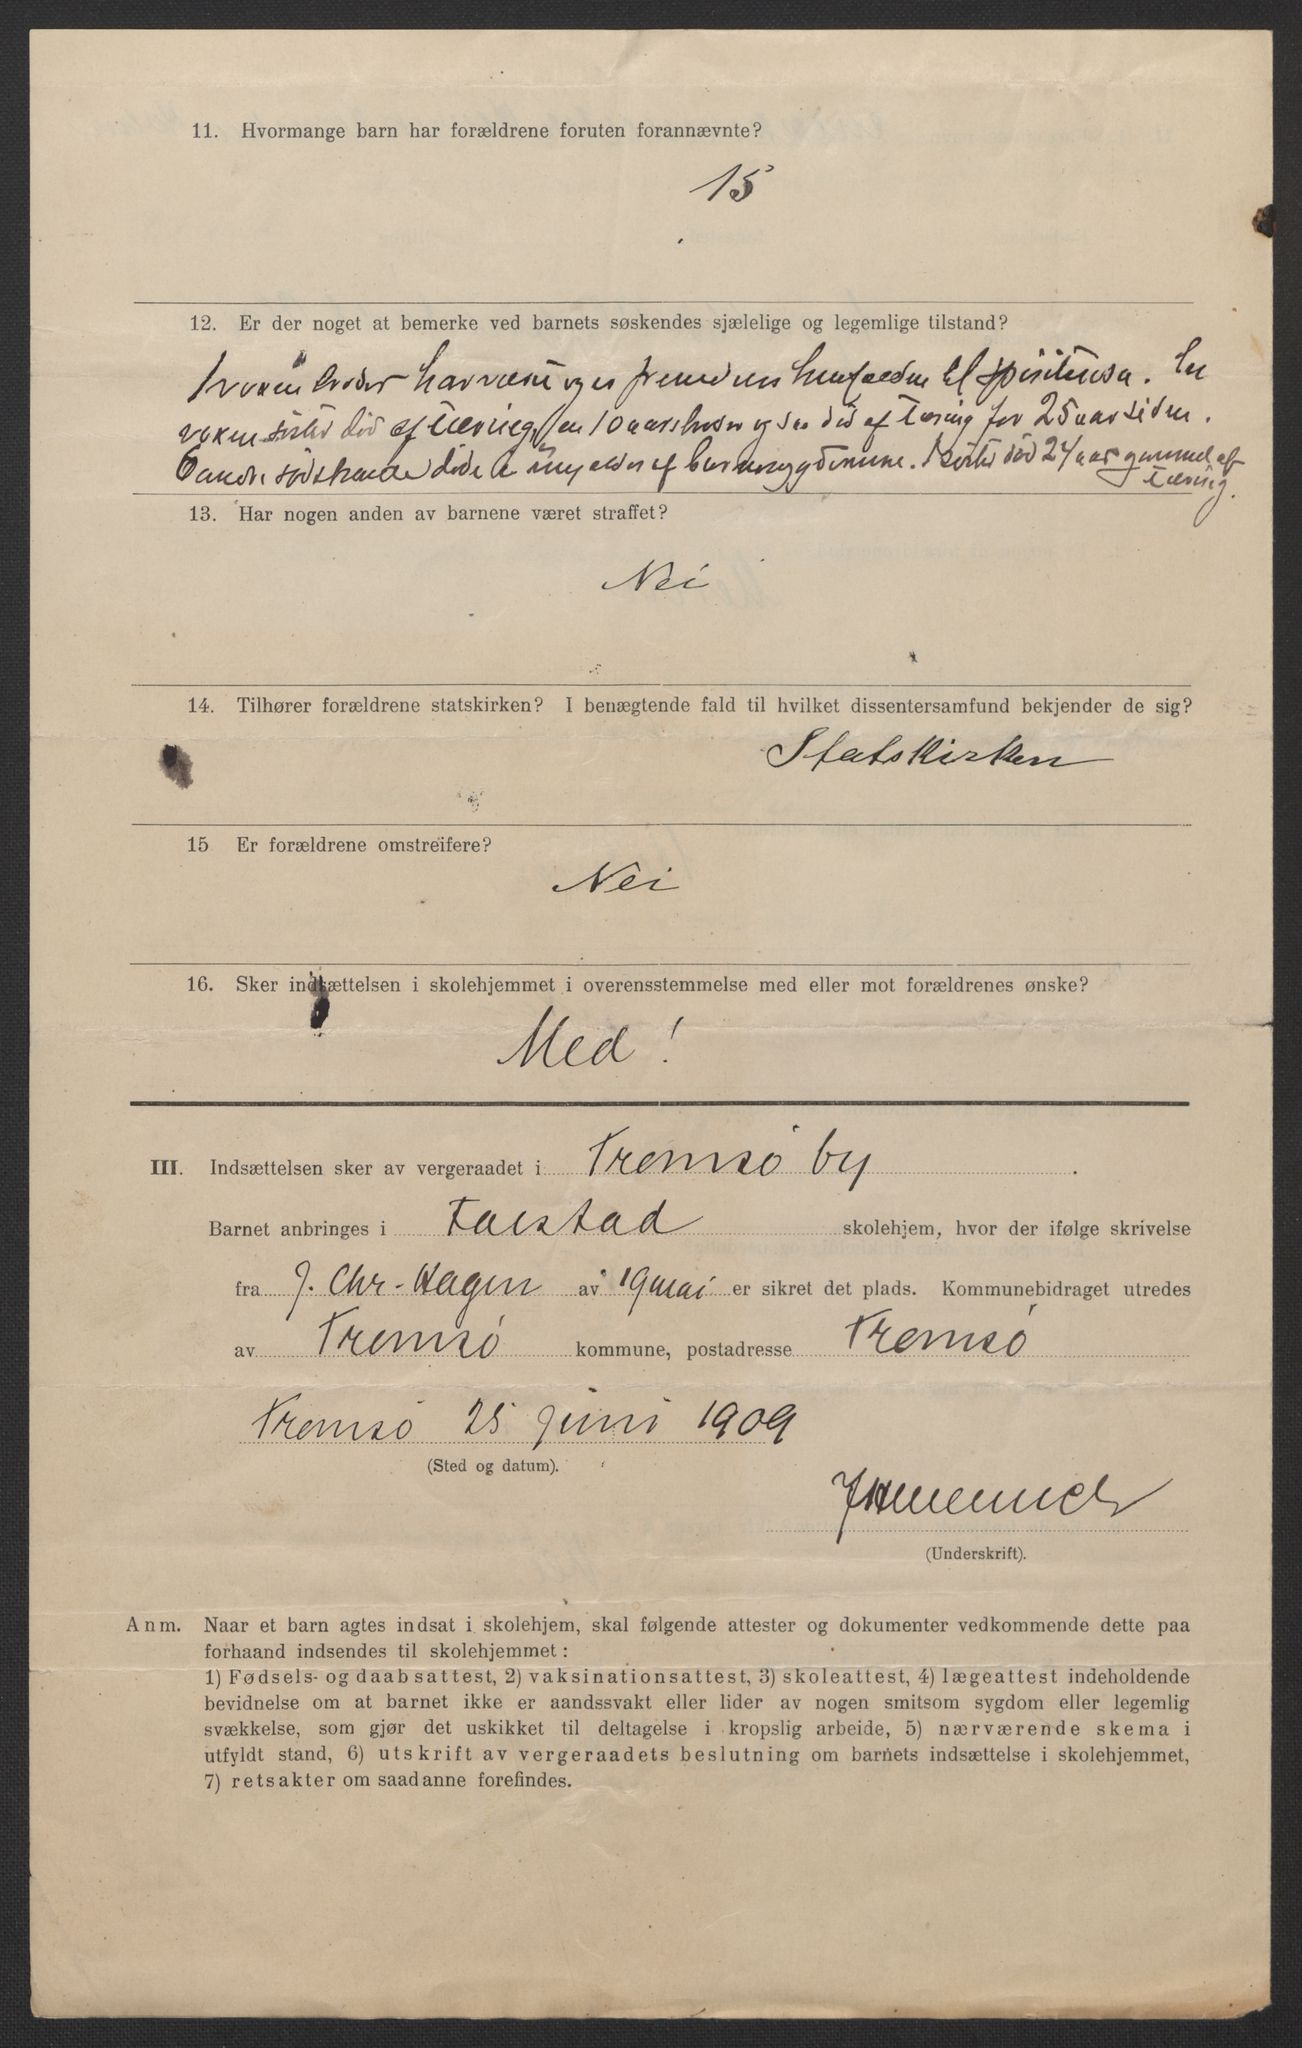 11. Hvormange barn har forældrene foruten forannævnte?
15
12. Er der noget at bemerke ved barnets søskendes sjælelige og legemlige tilstand?
1 voxen broder har været og er fremdeles henfalden til spirituosa. En
voxen søster død af tæring, en 10 aars broder ogsaa død af tæring for 25 aar siden.
6 andre sødskende døde i ung alder af barnesygdomme. 1 søster død 24 aar gammel af
tæring.
13. Har nogen anden av barnene været straffet?
Nei
14. Tilhører forældrene statskirken? I benægtende fald til hvilket dissentersamfund bekjender de sig?
Statskirken
15 Er forældrene omstreifere?
Nei
16. Sker indsættelsen i skolehjemmet i overensstemmelse med eller mot forældrenes ønske?
Med!
III. Indsættelsen sker av vergeraadet i Tromsø by.
Barnet anbringes i Falstad skolehjem, hvor der ifølge skrivelse
fra J. Chr. Hagen av 19 mai er sikret det plads. Kommunebidraget utredes
av Tromsø kommune, postadresse Tromsø
Tromsø 25 juni 1909
(Sted og datum).
(Underskrift).
Anm. Naar et barn agtes indsat i skolehjem, skal følgende attester og dokumenter vedkommende dette paa
forhaand indsendes til skolehjemmet:
1) Fødsels- og daabsattest, 2) vaksinationsattest, 3) skoleattest, 4) lægeattest indeholdende
bevidnelse om at barnet ikke er aandssvakt eller lider av nogen smitsom sygdom eller legemlig
svækkelse, som gjør det uskikket til deltagelse i kropslig arbeide, 5) nærværende skema i
utfyldt stand, 6) utskrift av vergeraadets beslutning om barnets indsættelse i skolehjemmet,
7) retsakter om saadanne forefindes.